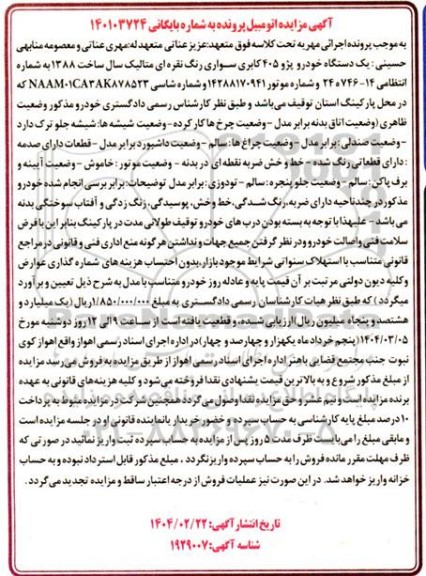 آگهی مزایده اتومبیل پرونده به شماره بایگانی ۱۴۰۱۰۳۷۲۴
به موجب پرونده اجرائی مهریه تحت کلاسه فوق متعهد: عزیز عنانی متعهد له: مهری عنانی و معصومه منابهی
حسینی: یک دستگاه خودرو پژو ۴۰۵ کابر سواری رنگ نقره ای متالیک سال ساخت ۱۳۸۸ به شماره
انتظامی ۱۴-۷۴۶و۲۴ و شماره موتور ۱۴۲۸۸۱۷۰۹۴۱ و شماره شاسی NAAM۰۱CA۳AK۸۷۸۵۲۳ که
در محل پارکینگ استان توقیف می باشد و طبق نظر کارشناس رسمی دادگستری خودرو مذکور وضعیت
ظاهری (وضعیت اتاق بدنه برابر مدل - وضعیت چرخ ها کار کرده - وضعیت شیشه ها: شیشه جلو ترک دارد
- وضعیت صندلی: برابر مدل - وضعیت چراغ ها: سالم - وضعیت داشبورد برابر مدل - قطعات دارای صدمه
: دارای قطعاتی رنگ شده - خط و خش ضربه نقطه ای در بدنه - وضعیت موتور: خاموش - وضعیت آیینه و
برف پاکن: سالم - وضعیت جلو پنجره: سالم - تودوزی: برابر مدل توضیحات: برابر برسی انجام شده خودرو
مذکور در چند ناحیه دارای ضربه، رنگ شدگی، خط و خش، پوسیدگی، زنگ زدگی و آفتاب سوختگی بدنه
می باشد - علیهذا با توجه به بسته بودن درب های خودرو توقیف طولانی مدت در پارکینگ بنابر این با فرض
سلامت فنی و اصالت خودرو و در نظر گرفتن جمیع جهات و نداشتن هر گونه منع اداری فنی و قانونی در مراجع
قانونی متناسب با استهلاک سنواتی شرایط موجود بازار، بدون احتساب هزینه های شماره گذاری عوارض
و کلیه دیون دولتی مرتبت بر آن قیمت پایه و عادله روز خودرو متناسب با مدل به شرح ذیل تعیین و برآورد
میگردد) که طبق نظر هیات کارشناسان رسمی دادگستری به مبلغ ۱/۸۵۰/۰۰۰/۰۰۰ ریال (یک میلیارد و
هشتصد و پنجاه میلیون ریال) ارزیابی شده، و قطعیت یافته است از ساعت ۹ الی ۱۲ روز دوشنبه مورخ
۱۴۰۴/۰۳/۰۵ (پنجم خرداد ماه یکهزار و چهارصد و چهار) در اداره اجرای اسناد رسمی اهواز واقع اهواز کوی
نبوت جنب مجتمع قضایی باهنر اداره اجرای اسناد رسمی اهواز از طریق مزایده به فروش می رسد مزایده
از مبلغ مذکور شروع و به بالاترین قیمت پشنهادی نقدا فروخته می شود و کلیه هزینه های قانونی به عهده
برنده مزایده است و نیم عشر و حق مزایده نقدا وصول می گردد همچنین شرکت در مزایده منوط به پرداخت
۱۰ درصد مبلغ پایه کارشناسی به حساب سپرده و حضور خریدار یا نماینده قانونی او در جلسه مزایده است
و مابقی مبلغ را می بایست ظرف مدت ۵ روز پس از مزایده به حساب سپرده ثبت واریز نمائید در صورتی که
ظرف مهلت مقرر مانده فروش را به حساب سپرده واریز نگردد، مبلغ مذکور قابل استرداد نبوده و به حساب
خزانه واریز خواهد شد. در این صورت نیز عملیات فروش از درجه اعتبار ساقط و مزایده تجدید می گردد.
تاریخ انتشار آگهی: ۱۴۰۴/۰۲/۲۲
شناسه آگهی: ۱۹۲۹۰۰۷